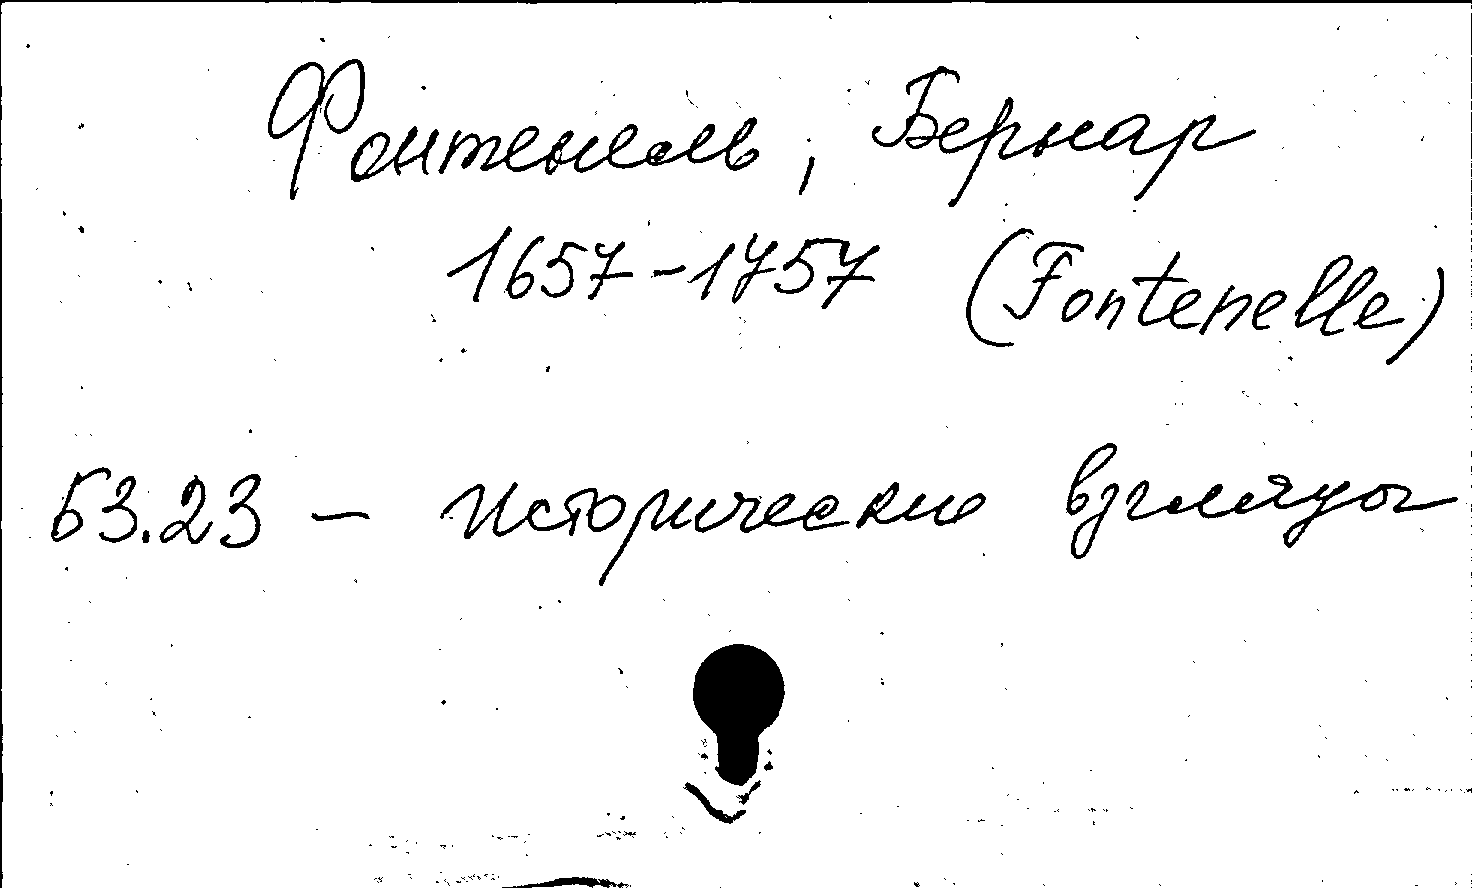 Фонтенель, Бернар
1657-1757 (Fontenelle)
Б3.23 - исторические взгляды